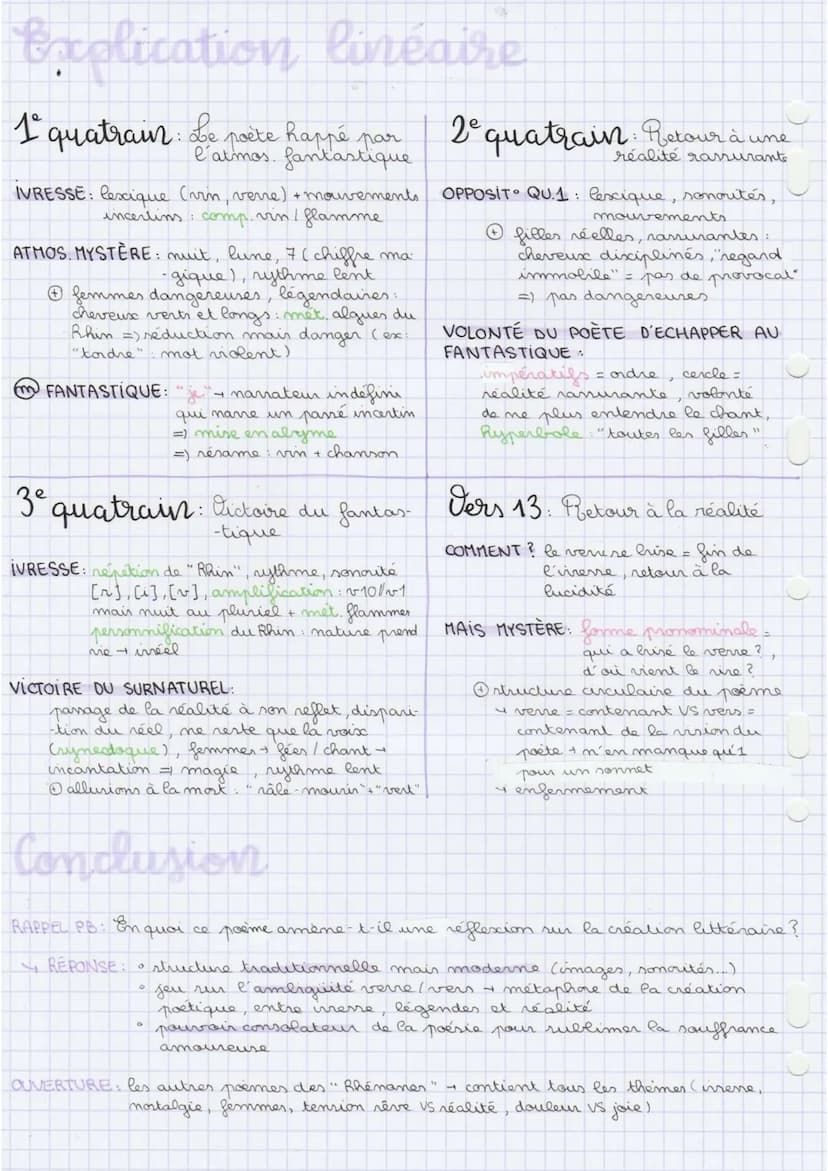 Explication linéaire
1e quatrain : Le poète happé par
l'atmos. fantastique
IVRESSE : lexique (vin, verre) + mouvements
incertins : comp. vin / flamme
ATMOS. MYSTÈRE : nuit, lune, 7 (chiffre ma-
-gique), rythme lent
+ femmes dangereuses, légendaires :
cheveux verts et longs : mét. algues du
Rhin => séduction mais danger (ex:
"tordre" : mot violent)
m FANTASTIQUE : "je" → narrateur indéfini
qui narre un passé incertin
=> mise en abyme
=> résume : vin + chanson
2e quatrain : Retour à une
réalité rassurante
OPPOSIT° QU.1 : lexique, sonorités,
mouvements
+ filles réelles, rassurantes :
cheveux disciplinés, "regard
immobile" = pas de provocat°
=> pas dangereuses
VOLONTÉ DU POÈTE D'ECHAPPER AU
FANTASTIQUE :
impératifs = ordre, cercle =
réalité rassurante, volonté
de ne plus entendre le chant,
hyperbole : "toutes les filles"
3e quatrain : Victoire du fantas-
-tique
IVRESSE : répétition de "Rhin", rythme, sonorité
[r], [i], [v], amplification : v10//v1
mais nuit au pluriel + mét. flammes
personnification du Rhin : nature prend
vie → irréel
VICTOIRE DU SURNATUREL :
passage de la réalité à son reflet, dispari-
-tion du réel, ne reste que la voix
(synecdoque), femmes → fées / chant →
incantation => magie, rythme lent
+ allusions à la mort : "râle-mourir" + "vert"
Vers 13 : Retour à la réalité
COMMENT ? le verre se brise = fin de
l'ivresse, retour à la
lucidité
MAIS MYSTÈRE : forme pronominale =
qui a brisé le verre ?,
d'où vient le rire ?
+ structure circulaire du poème
↳ verre = contenant VS vers =
contenant de la vision du
poète + n'en manque qu'1
pour un sonnet
↳ enfermement
Conclusion
RAPPEL PB : En quoi ce poème amène-t-il une réflexion sur la création littéraire ?
↳ RÉPONSE : ° structure traditionnelle mais moderne (images, sonorités...)
° jeu sur l'ambigüité verre/vers → métaphore de la création
poétique, entre ivresse, légendes et réalité
° pouvoir consolateur de la poésie pour sublimer la souffrance
amoureuse
OUVERTURE : les autres poèmes des "Rhénanes" → contient tous les thèmes (ivresse,
nostalgie, femmes, tension rêve VS réalité, douleur VS joie)